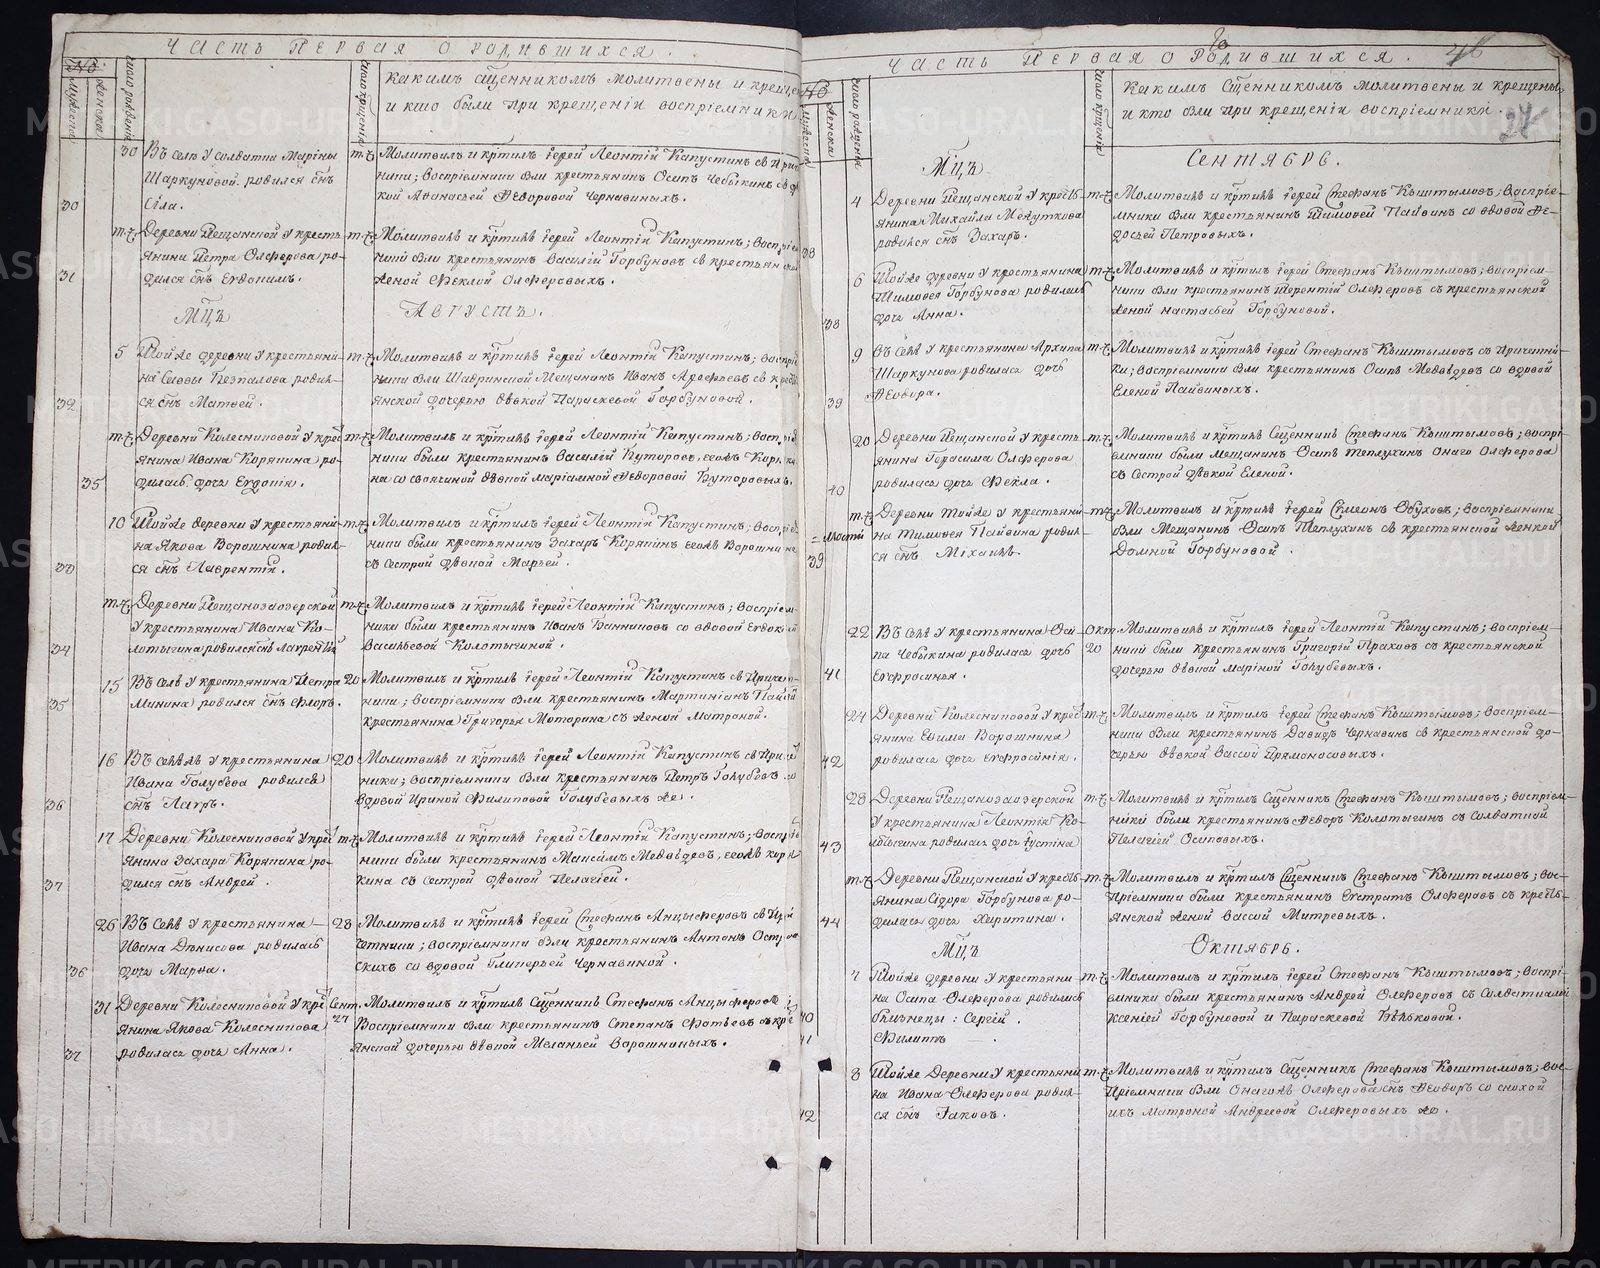 ЧАСТЬ ПЕРВАЯ О РОДИВШИХСЯ.
№
мужеска
женска
число рождения
число крещенія
какимъ сщенникомъ молитвены и крещены
и кто были при крещеніи воспріемники
30
30
Въ селѣ у солдатки Марины
Шаркуновой родился снъ
Сіла.
т.ч.
Молитвилъ и кртилъ іерей Леонтій Капустинъ св прич
ники; воспріемники бли крестьянинъ Осипъ Чебыкинъ св
кой Афанасьей Ѳедоровой Чернавиныхъ.
31
т.ч.
Деревни Пещанской у кресть
янина Петра Олферова ро-
дился снъ Евдокимъ.
т.ч.
Молитвилъ и кртилъ іерей Леонтій Капустинъ; воспріем
ники бли крестьянинъ Василій Горбуновъ св крестьянской
женой Феклой Олферовыхъ.
МЦЪ
АВГУСТЪ.
32
5
Той же деревни у крестьяни-
на Саввы Безпалова родил-
ся снъ Матвей.
т.ч.
Молитвилъ и кртилъ іерей Леонтій Капустинъ; воспрі
ники бли Шадринской Мещанинъ Иванъ Арефьевъ св кресть
янской дочерью дѣвкой Параскевой Горбуновой.
35
т.ч.
Деревни Колесниковой у крес
янина Ивана Корякина ро-
дилась дочь Евдокія.
т.ч.
Молитвилъ и кртилъ іерей Леонтій Капустинъ; воспріе
ники были крестьянинъ Василій Буторовъ, селѣ Коряки
на со своячиной дѣвкой Маріамной Ѳедоровой Буторовыхъ.
33
10
Той же деревни у крестьяни-
на Якова Ворошнина родил-
ся снъ Лаврентій.
т.ч.
Молитвилъ и кртилъ іерей Леонтій Капустинъ; воспріе
ники были крестьянинъ Захаръ Корякинъ, Ворошнина
съ сестрой дѣвкой Марьей.
34
т.ч.
Деревни Пещанозаозерской
у крестьянина Ивана Ко-
лотыгина родился снъ Лаврентій
т.ч.
Молитвилъ и кртилъ іерей Леонтій Капустинъ; воспріем-
ники были крестьянинъ Иванъ Банниковъ со вдовой Евдокіей
Васильевой Колотыгиной.
35
15
Въ селѣ у крестьянина Петра
Минина родился снъ Флоръ.
20
Молитвилъ и кртилъ іерей Леонтій Капустинъ св Причет-
ники; воспріемники бли крестьянинъ Мартиніанъ Пайви
крестьянина Григорья Моторина съ женой Матроной.
36
16
Въ селѣ же у крестьянина
Ивана Голубева родился
снъ Лавръ.
20
Молитвилъ и кртилъ іерей Леонтій Капустинъ св Приче
ники; воспріемники бли крестьянинъ Петръ Голубевъ со
вдовой Ириной Филиповой Голубевыхъ же.
37
17
Деревни Колесниковой у крес
янина Захара Корякина ро-
дился снъ Андрей.
т.ч.
Молитвилъ и кртилъ іерей Леонтій Капустинъ; воспріе
ники были крестьянинъ Максимъ Медвѣдевъ, Коря
кина съ сестрой дѣвкой Пелагіей.
36
26
Въ селѣ у крестьянина
Ивана Дѣнисова родилась
дочь Марѳа.
28
Молитвилъ и кртилъ іерей Стефанъ Анцыферовъ св При
четники; воспріемники бли крестьянинъ Антонъ Остров
скихъ со вдовой Гликерьей Чернавиной.
37
31
Деревни Колесниковой у крес
янина Якова Колесникова
родилась дочь Анна.
Сент.
27
Молитвилъ и кртилъ Сщенникъ Стефанъ Анцыферовъ
Воспріемники бли крестьянинъ Степанъ Фотѣевъ съ крес
янской дочерью дѣвкой Меланьей Ворошниныхъ.
ЧАСТЬ ПЕРВАЯ О РОДИВШИХСЯ.
46
27
№
мужеска
женска
число рожденія
число крещенія
какимъ Сщенникомъ молитвены и крещены,
и кто бли при крещеніи воспріемники.
МЦЪ
СЕНТЯБРЬ.
38
4
Деревни Пещанской у кресть
янина Михайла Межуткова
родился снъ Захаръ.
т.ч.
Молитвилъ и кртилъ іерей Стефанъ Кыштымовъ; воспріе-
мники бли крестьянинъ Тимофей Пайвинъ со вдовой Фе-
досьей Петровыхъ.
38
6
Той же деревни у крестьянина
Тимофея Горбунова родилась
дочь Анна.
т.ч.
Молитвилъ и кртилъ іерей Стефанъ Кыштымовъ; воспріем-
ники бли крестьянинъ Терентій Олферовъ съ крестьянской
женой Настасьей Горбуновой.
39
9
Въ селѣ у крестьянина Архипа
Шаркунова родилась дочь
Ѳеодора.
т.ч.
Молитвилъ и кртилъ іерей Стефанъ Кыштымовъ съ Причетни-
ки; воспріемники бли крестьянинъ Осипъ Медвѣдевъ со вдовой
Еленой Пайвиныхъ.
40
20
Деревни Пещанской у кресть
янина Герасима Олферова
родилась дочь Фекла.
т.ч.
Молитвилъ и кртилъ Сщенникъ Стефанъ Кыштымовъ; воспрі-
емники были Мещанинъ Осипъ Теплухинъ онаго Олферова
съ Сестрой дѣвкой Еленой.
39
т.ч.
Деревни той же у крестьяни-
на Тимофея Пайвина родил-
ся снъ Міхаилъ.
т.ч.
Молитвилъ и кртилъ іерей Симеонъ Обуховъ; воспріемники
бли Мещанинъ Осипъ Теплухинъ св крестьянской женкой
Домной Горбуновой.
41
22
Въ селѣ у крестьянина Оси-
па Чебыкина родилась дочь
Евфросинья.
Окт.
20
Молитвилъ и кртилъ іерей Леонтій Капустинъ; воспріем-
ники были крестьянинъ Григорій Праховъ съ крестьянской
дочерью дѣвкой Мариной Голубевыхъ.
42
24
Деревни Колесниковой у крес
янина Ефима Ворошнина
родилась дочь Евфросинія.
т.ч.
Молитвилъ и кртилъ іерей Стефанъ Кыштымовъ; воспріем-
ники бли крестьянинъ Давидъ Чернавинъ св крестьянской до-
черью дѣвкой Вассой Прямоносовыхъ.
43
28
Деревни Пещанозаозерской
у крестьянина Леонтія Ко-
лотыгина родилась дочь Іустіна
т.ч.
Молитвилъ и кртилъ Сщенникъ Стефанъ Кыштымовъ; воспріем-
ники были крестьянинъ Ѳедоръ Колотыгинъ съ Солдаткой
Пелагіей Осиповыхъ.
44
т.ч.
Деревни Пещанской у кресть-
янина Сідора Горбунова ро-
дилась дочь Харитина.
т.ч.
Молитвилъ и кртилъ Сщенникъ Стефанъ Кыштымовъ; вос-
пріемники были крестьянинъ Евстратъ Олферовъ съ кресть-
янской женой Вассой Митревыхъ.
МЦЪ
ОКТЯБРЬ.
40
41
7
Той же деревни у крестьяни-
на Осипа Олферова родились
близнецы: Сергій.
Филиппъ.
т.ч.
Молитвилъ и кртилъ іерей Стефанъ Кыштымовъ; воспрі-
емники были крестьянинъ Андрей Олферовъ съ Солдаткой
Ксеніей Горбуновой и Параскевой Бѣльковой.
42
8
Той же деревни у крестьяни
на Ивана Олферова родил-
ся снъ Іаковъ.
т.ч.
Молитвилъ и кртилъ Сщенникъ Стефанъ Кыштымовъ; вос-
пріемники бли Онагожъ Олферова снъ Ѳеодоръ со снохой
ихъ Матроной Андреевой Олферовыхъ же.
METRIKI.GASO-URAL.RU